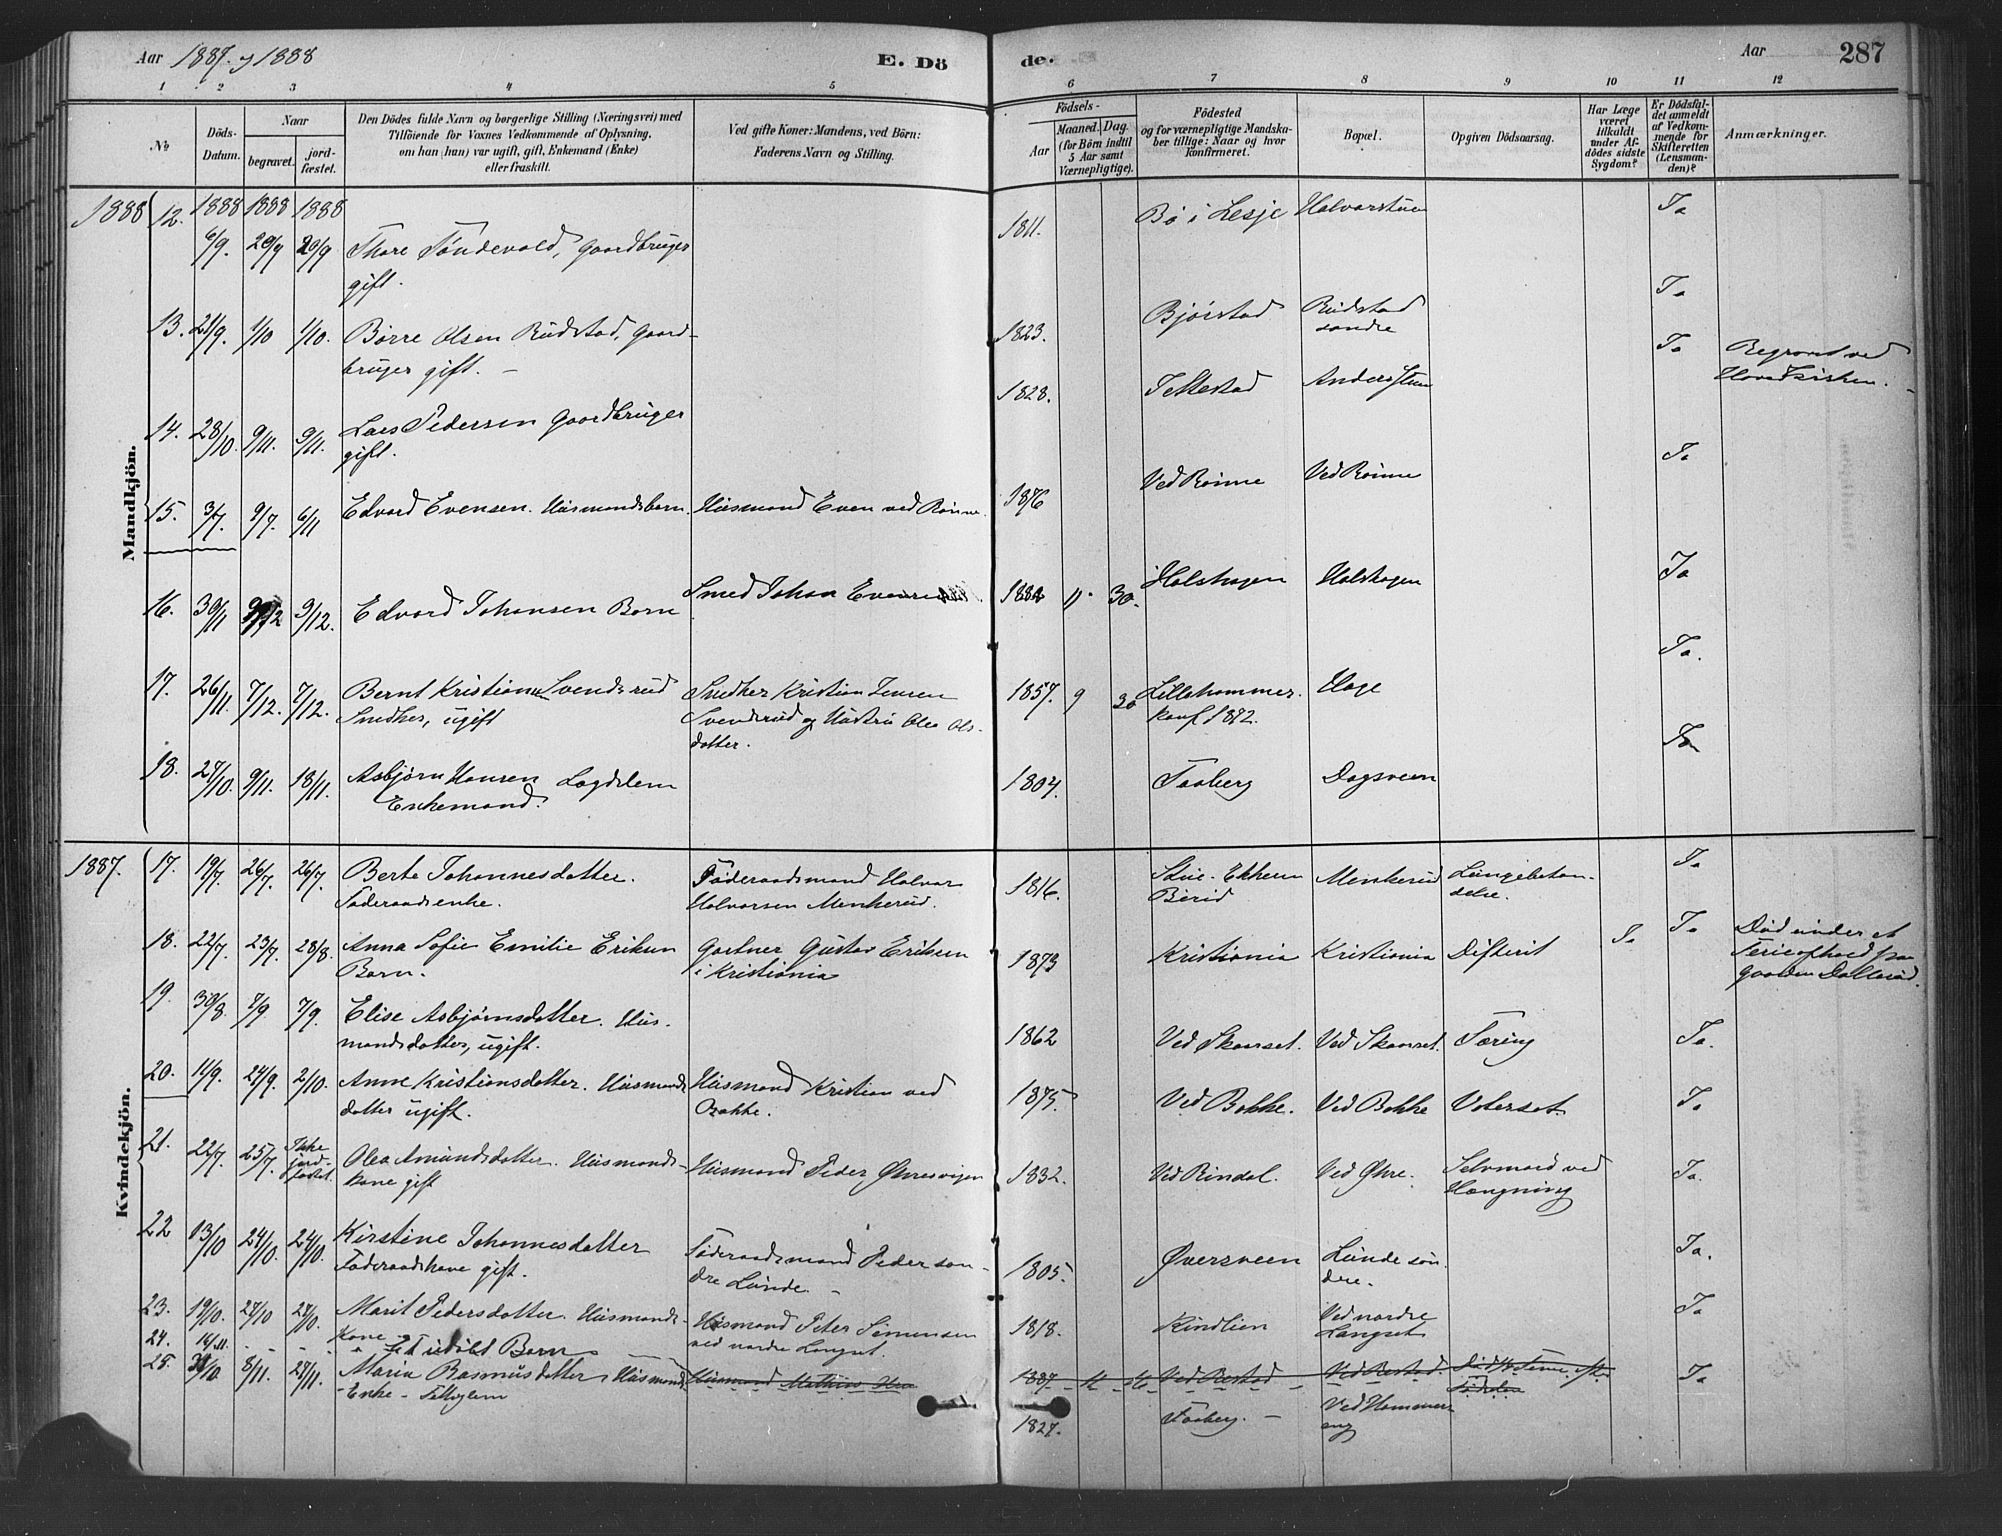 Aar 1887. og 1888
E. Dö
de.
Aar
287
1 2 3 4 5 6 7 8 9 10 11 12
No
Döds-
Datum.
Naar
begravet.
jord-
fæstet.
Den Dödes fulde Navn og borgerlige Stilling (Næringsvei) med
Tilföiende for Voxnes Vedkommende af Oplysning,
om han (hun) var ugift, gift, Enkemand (Enke)
eller fraskilt.
Ved gifte Koner: Mandens, ved Börn:
Faderens Navn og Stilling.
Födsels-
Aar
Maaned. Dag.
(for Börn indtil
5 Aar samt
Værnepligtige).
Födested
og for værnepligtige Mandska-
ber tillige: Naar og hvor
Konfirmeret.
Bopæl.
Opgiven Dödsaarsag.
Har Læge
været
tilkaldt
under Af-
dödes sidste
Sygdom?
Er Dödsfal-
det anmeldt
af Vedkom-
mende for
Skifteretten
(Lensman-
den)?
Anmærkninger.
Mandkjön.
1888 12. 1888 1888 1888
6/9. 20/9 20/9 Thore Tøndevold, Gaardbruger
gift.
1811. Bø i Lesje Halvorstuen Ja
13. 21/9. 1/10 1/10. Børre Olsen Rudstad, Gaard-
bruger gift. –
1823. Bjørstad Rudstad
søndre Ja
14. 28/10. 9/11. 9/11. Lars Pedersen Gaardbruger
gift.
1828. Tollestad Andersstuen Ja Begravet ved
Hovedkirken.
15. 3/7. 9/7. 6/11 Edvard Evensen. Husmandsbarn. Husmand Even ved Rønne.
1876 Ved Rønne Ved Rønne Ja
16. 30/11 9/12 9/12. Edvard Johansen Barn Smed Johan Evensen
1882 11 30. Holshagen Holshagen Ja
17. 26/11. 7/12. 7/12. Bernt Kristian Svendsrud
Snedker, ugift
Snedker Kristian Jensen
Svendsrud og Hustru Olea Ols-
datter.
1857. 9 20 Lillehammer.
konf. 1872. Hage Ja.
18. 27/10. 9/11. 18/11. Asbjørn Hansen Lægdslem
Enkemand.
1804. Faaberg Dagsveen Ja
Kvindekjön.
1887. 17. 19/7. 26/7. 26/7. Berte Johannesdatter.
Føderaadsenke.
Føderaadsmand Halvor
Halvorsen Menkerud.
1816. Birid Menkerud Lungebetæn-
delse. Ja
18. 22/7. 23/7. 28/8. Anna Sofie Emilie Eriksen
Barn.
Gartner Gustav Eriksen
i Kristiania
1873 Kristiania Kristiania Difterit Ja Ja Død under et
Ferieophold paa
gaarden Dallerud.
19. 30/8. 7/9 7/9. Elise Asbjørnsdatter. Hus-
mandsdatter, ugift.
1862 Ved Skaarset. Ved Skaarset. Tæring Ja.
20. 11/9. 24/9. 2/10. Anne Kristiansdatter. Husmands
datter ugift.
Husmand Kristian ved
Bakke.
1875. Ved Bakke. Ved Bakke Vaterset. Ja
21. 22/7. 25/7. Ikke
jord-
fæstet. Olea Amundsdatter. Husmands-
kone gift
Husmand Peder Øvresvigen
1832. Ved Rindal. Ved Øvre. Selvmord ved
Hængning Ja.
22 13/10 24/10. 24/10. Kirstine Johannesdatter
Føderaadskone gift.
Føderaadsmand Peder søn-
dre Lunde. –
1805. Øversveen Lunde søn
dre. Ja.
23. 19/10. 27/10 27/10. Marit Pedersdatter. Husmands-
Kone –
Husmand Peter Simensen
ved nordre Langset.
1818. Kindlien Ved nordre
Langset Ja
24. 14/11. Et udøbt Barn
Husmand Mathias
1887 Ved Rustad Ved Rustad.
25. 31/10. 8/11. 27/11. Maria Rasmusdatter Husmands
Enke –
1827. Faaberg. – Ved Hammers-
eng Ja